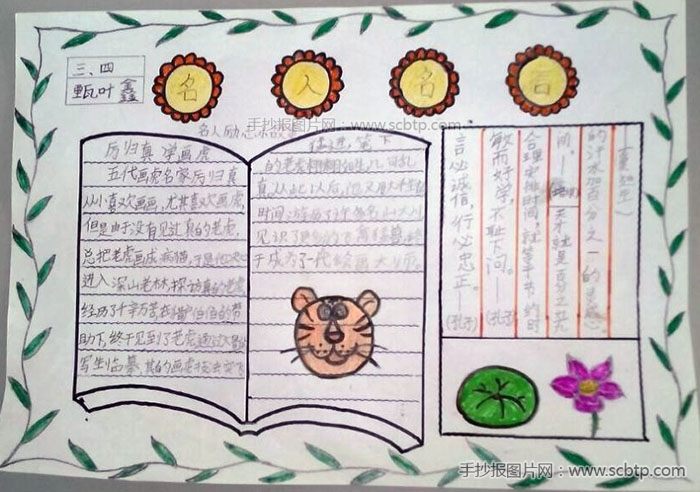 三、四
甄叶鑫
名人名言
手抄报图片网：www.scbtp.com
厉归真学画虎
五代画虎名家厉归真
从小喜欢画画，尤其喜欢画虎，
但是由于没有见过真的老虎，
总把老虎画成病猫，于是他决心
进入深山老林，探访真的老虎，
经历了千辛万苦在猎户伯伯的帮
助下，终于见到了老虎，通过大量的
写生临摹，其的画虎技法突飞
猛进，笔下
的老虎栩栩如生，几可乱
真，从此以后，他又用大半生的
时间
于成为了一代绘画
言必诚信，行必忠正。——（孔子）
敏而好学，不耻下问。——（孔子）
合理安排时间，就等于节约时
间。
天才就是百分之九
的汗水加百分之一的灵感。
手抄报图片网：www.scbtp.com